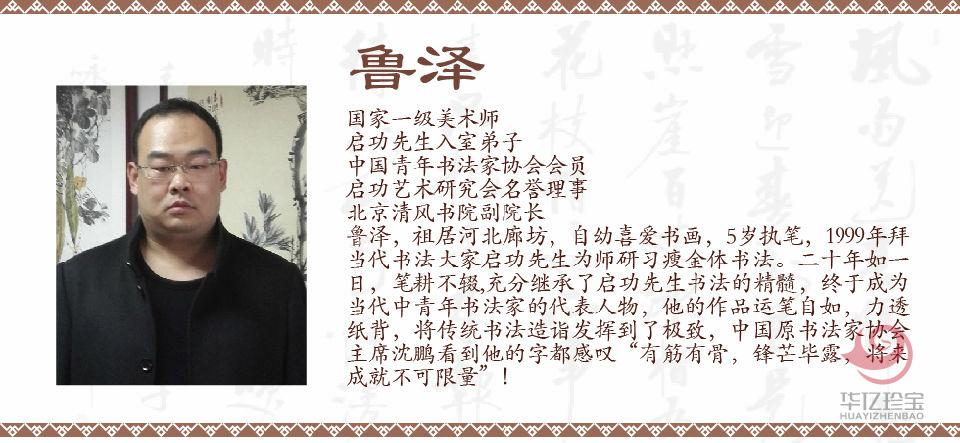 鲁泽
国家一级美术师
启功先生入室弟子
中国青年书法家协会会员
启功艺术研究会名誉理事
北京清风书院副院长
鲁泽，祖居河北廊坊，自幼喜爱书画，5岁执笔，1999年拜
当代书法大家启功先生为师研习瘦金体书法。二十年如一
日，笔耕不辍,充分继承了启功先生书法的精髓，终于成为
当代中青年书法家的代表人物，他的作品运笔自如，力透
纸背，将传统书法造诣发挥到了极致，中国原书法家协会
主席沈鹏看到他的字都感叹“有筋有骨，锋芒毕露，将来
成就不可限量”！
华亿珍宝
HUAYIZHENBAO